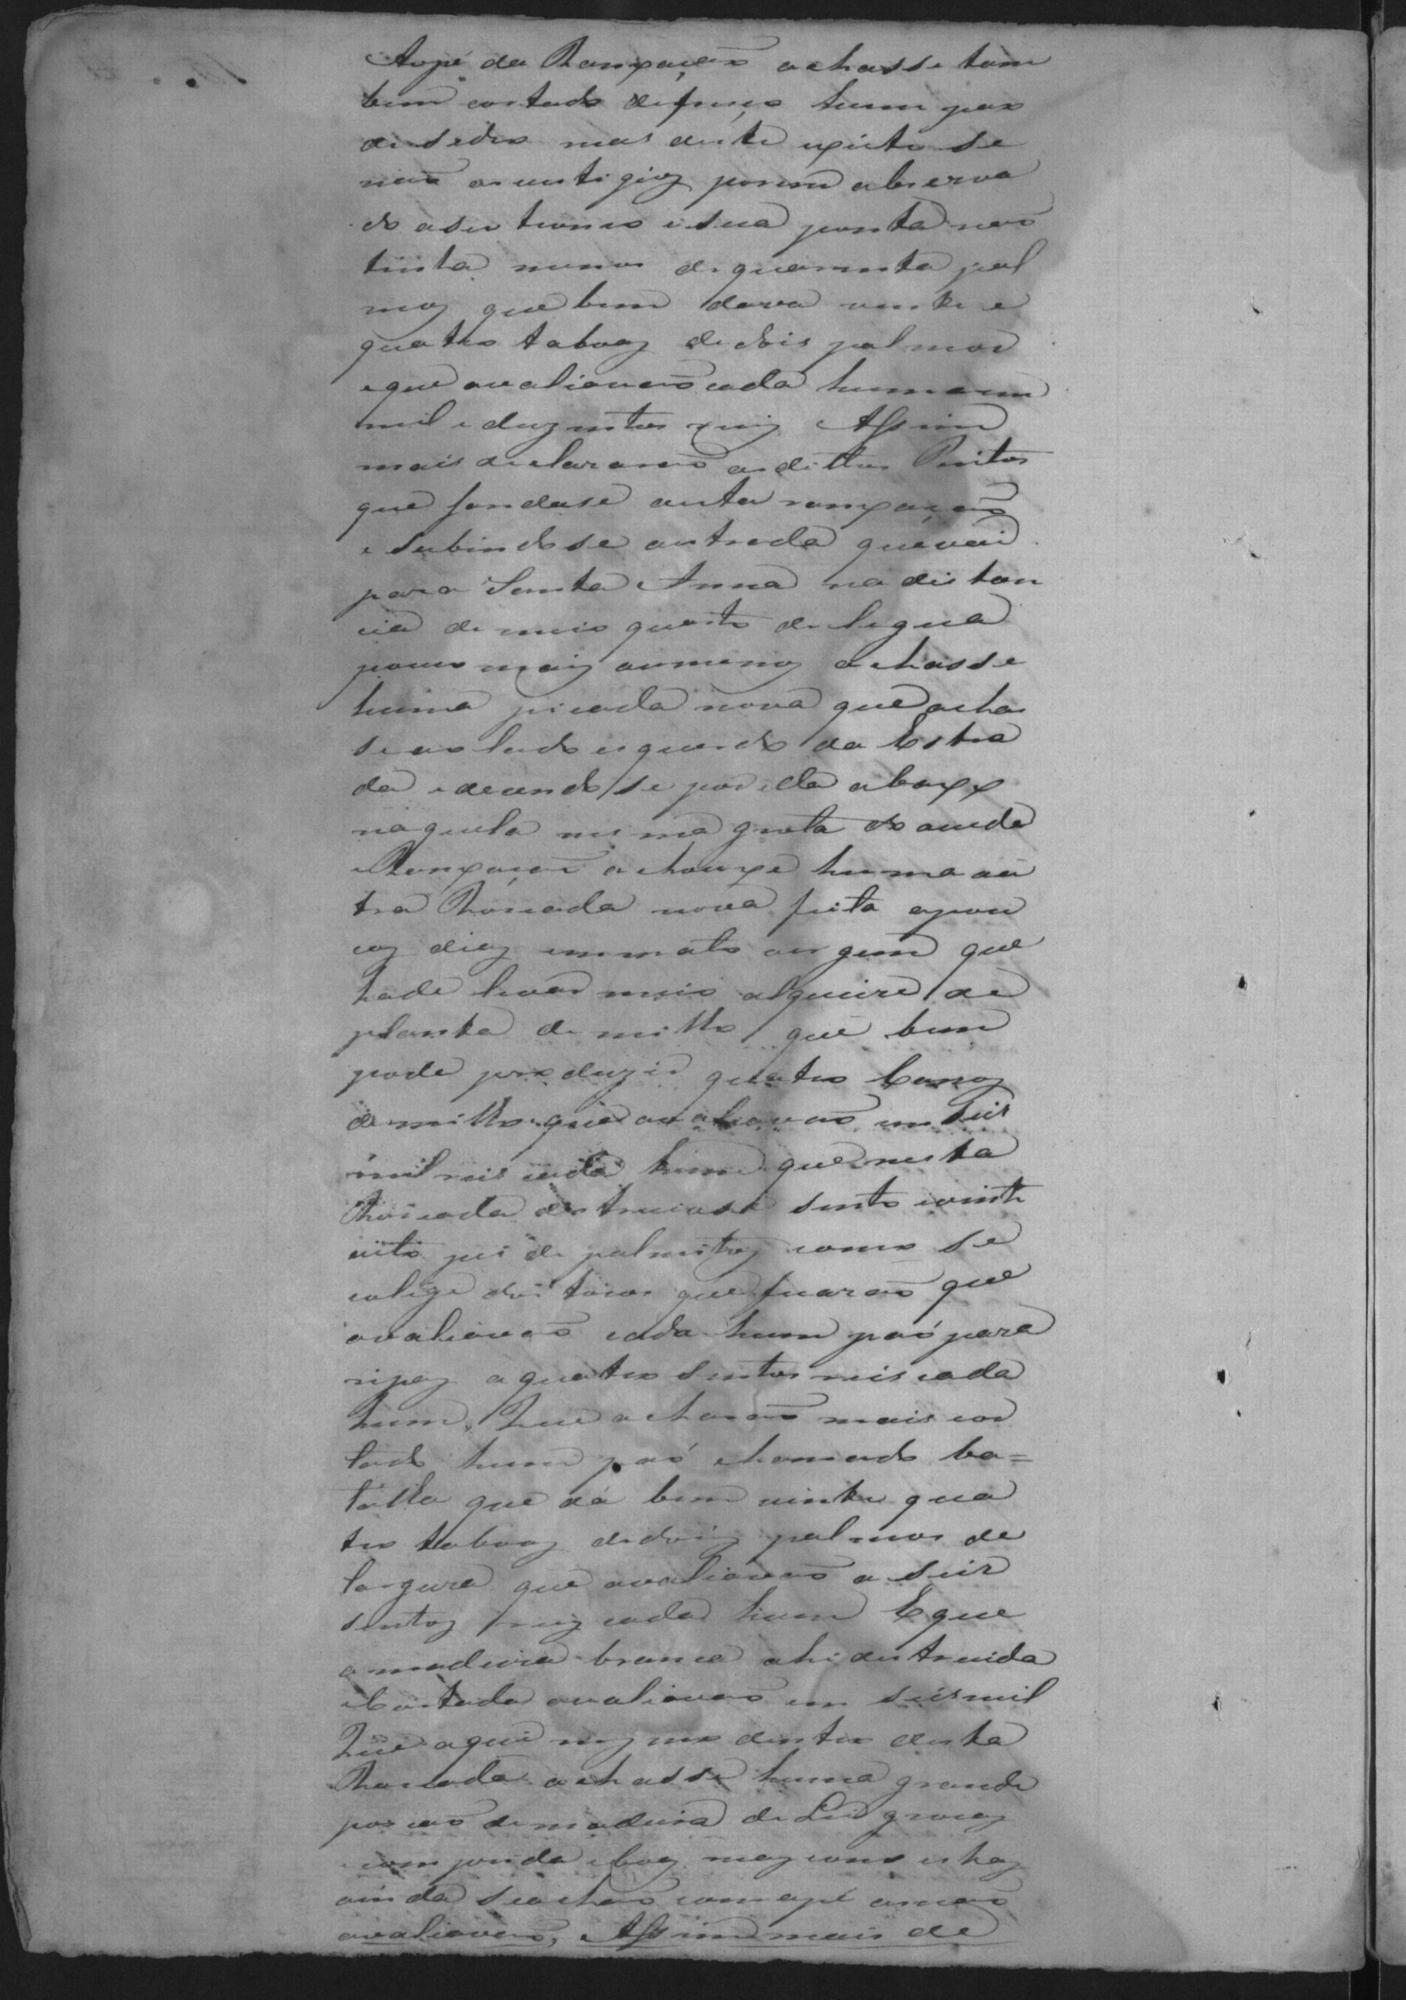 Aopé da Ranxação achasse tam
bem cortado defresco hum pao
de sedro mas deste existe se
não os vestigios porem observa
do aseu tronco e sua ponta não
tinha menos de quarenta pal
mos que bem dava vinte e
quatro taboas de dois palmos
e que avaliavão cada huma em
mil e duzentos reis Assim
mais declararão os dittos Peritos
que sahindose desta
e subindose aestrada que vai
para Santa Anna na distan
cia de meio quarto de legua
pouco mais oumenos achasse
huma picada nova que acha
se ao lado esquerdo da Estra
da e decendo se por ella abaixo
naquela mesma grota do
achouse huma ou
tra Rossada nova feita apou
cos dias em mato virgem que
hade levar meio alqueire de
planta de milho que bem
pode produzir quatro Carros
de milho que avaliavão em Seis
mil reis cada hum que nesta
Rossada destruiose sento evinte
oito pes de palmitos como se
colige dos tocos que ficarão que
avaliavão cada hum paó para
ripas a quatro sentos reis cada
hum, Que acharão mais cor
tado hum paó chamado ba=
talha que dá bem vinte qua
tro taboas dedois palmos de
largura que avaliavão a seis
sentos reis cada hum E que
amadeira branca ahi destruida
e Cortada avaliavão em seis mil
Que aqui mesmo dentro desta
Rossada achasse huma grande
porção demadeira de Lei grossas
e boas mas como estas
ainda se achão com apé anão
avaliavão, Assim mais de